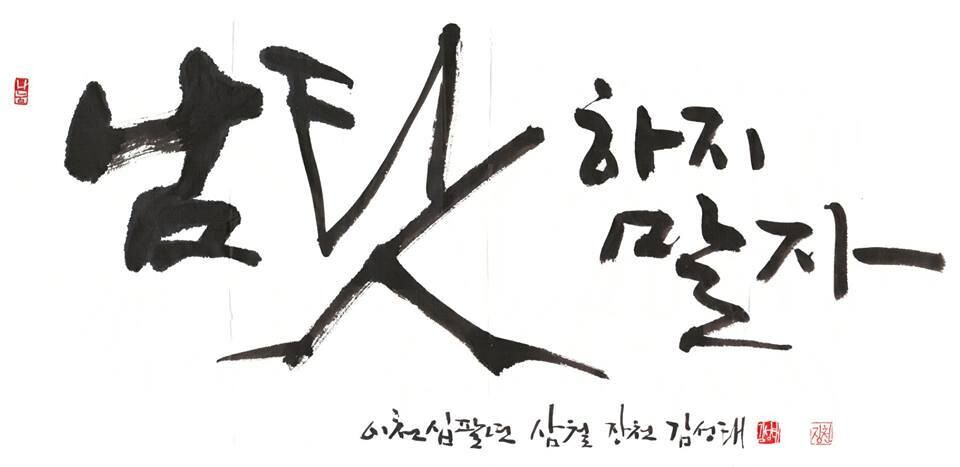 남탓
하지
말자
이천십팔년 삼월 장천 김성태
장천